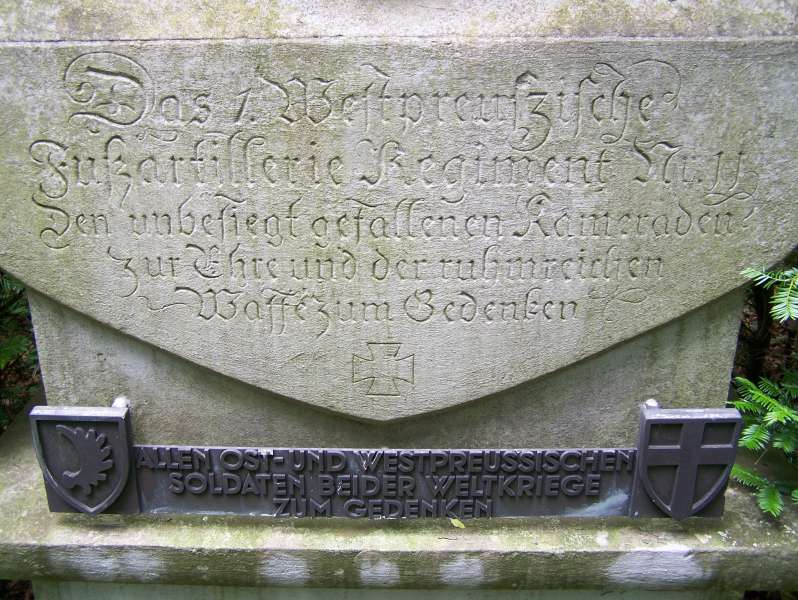 Das 1. Westpreuszische
Fuszartillerie Regiment Nr. 11
Den unbesiegt gefallenen Kameraden
zur Ehre und der ruhmreichen
Waffe zum Gedenken
ALLEN OST- UND WESTPREUSSISCHEN
SOLDATEN BEIDER WELTKRIEGE
ZUM GEDENKEN